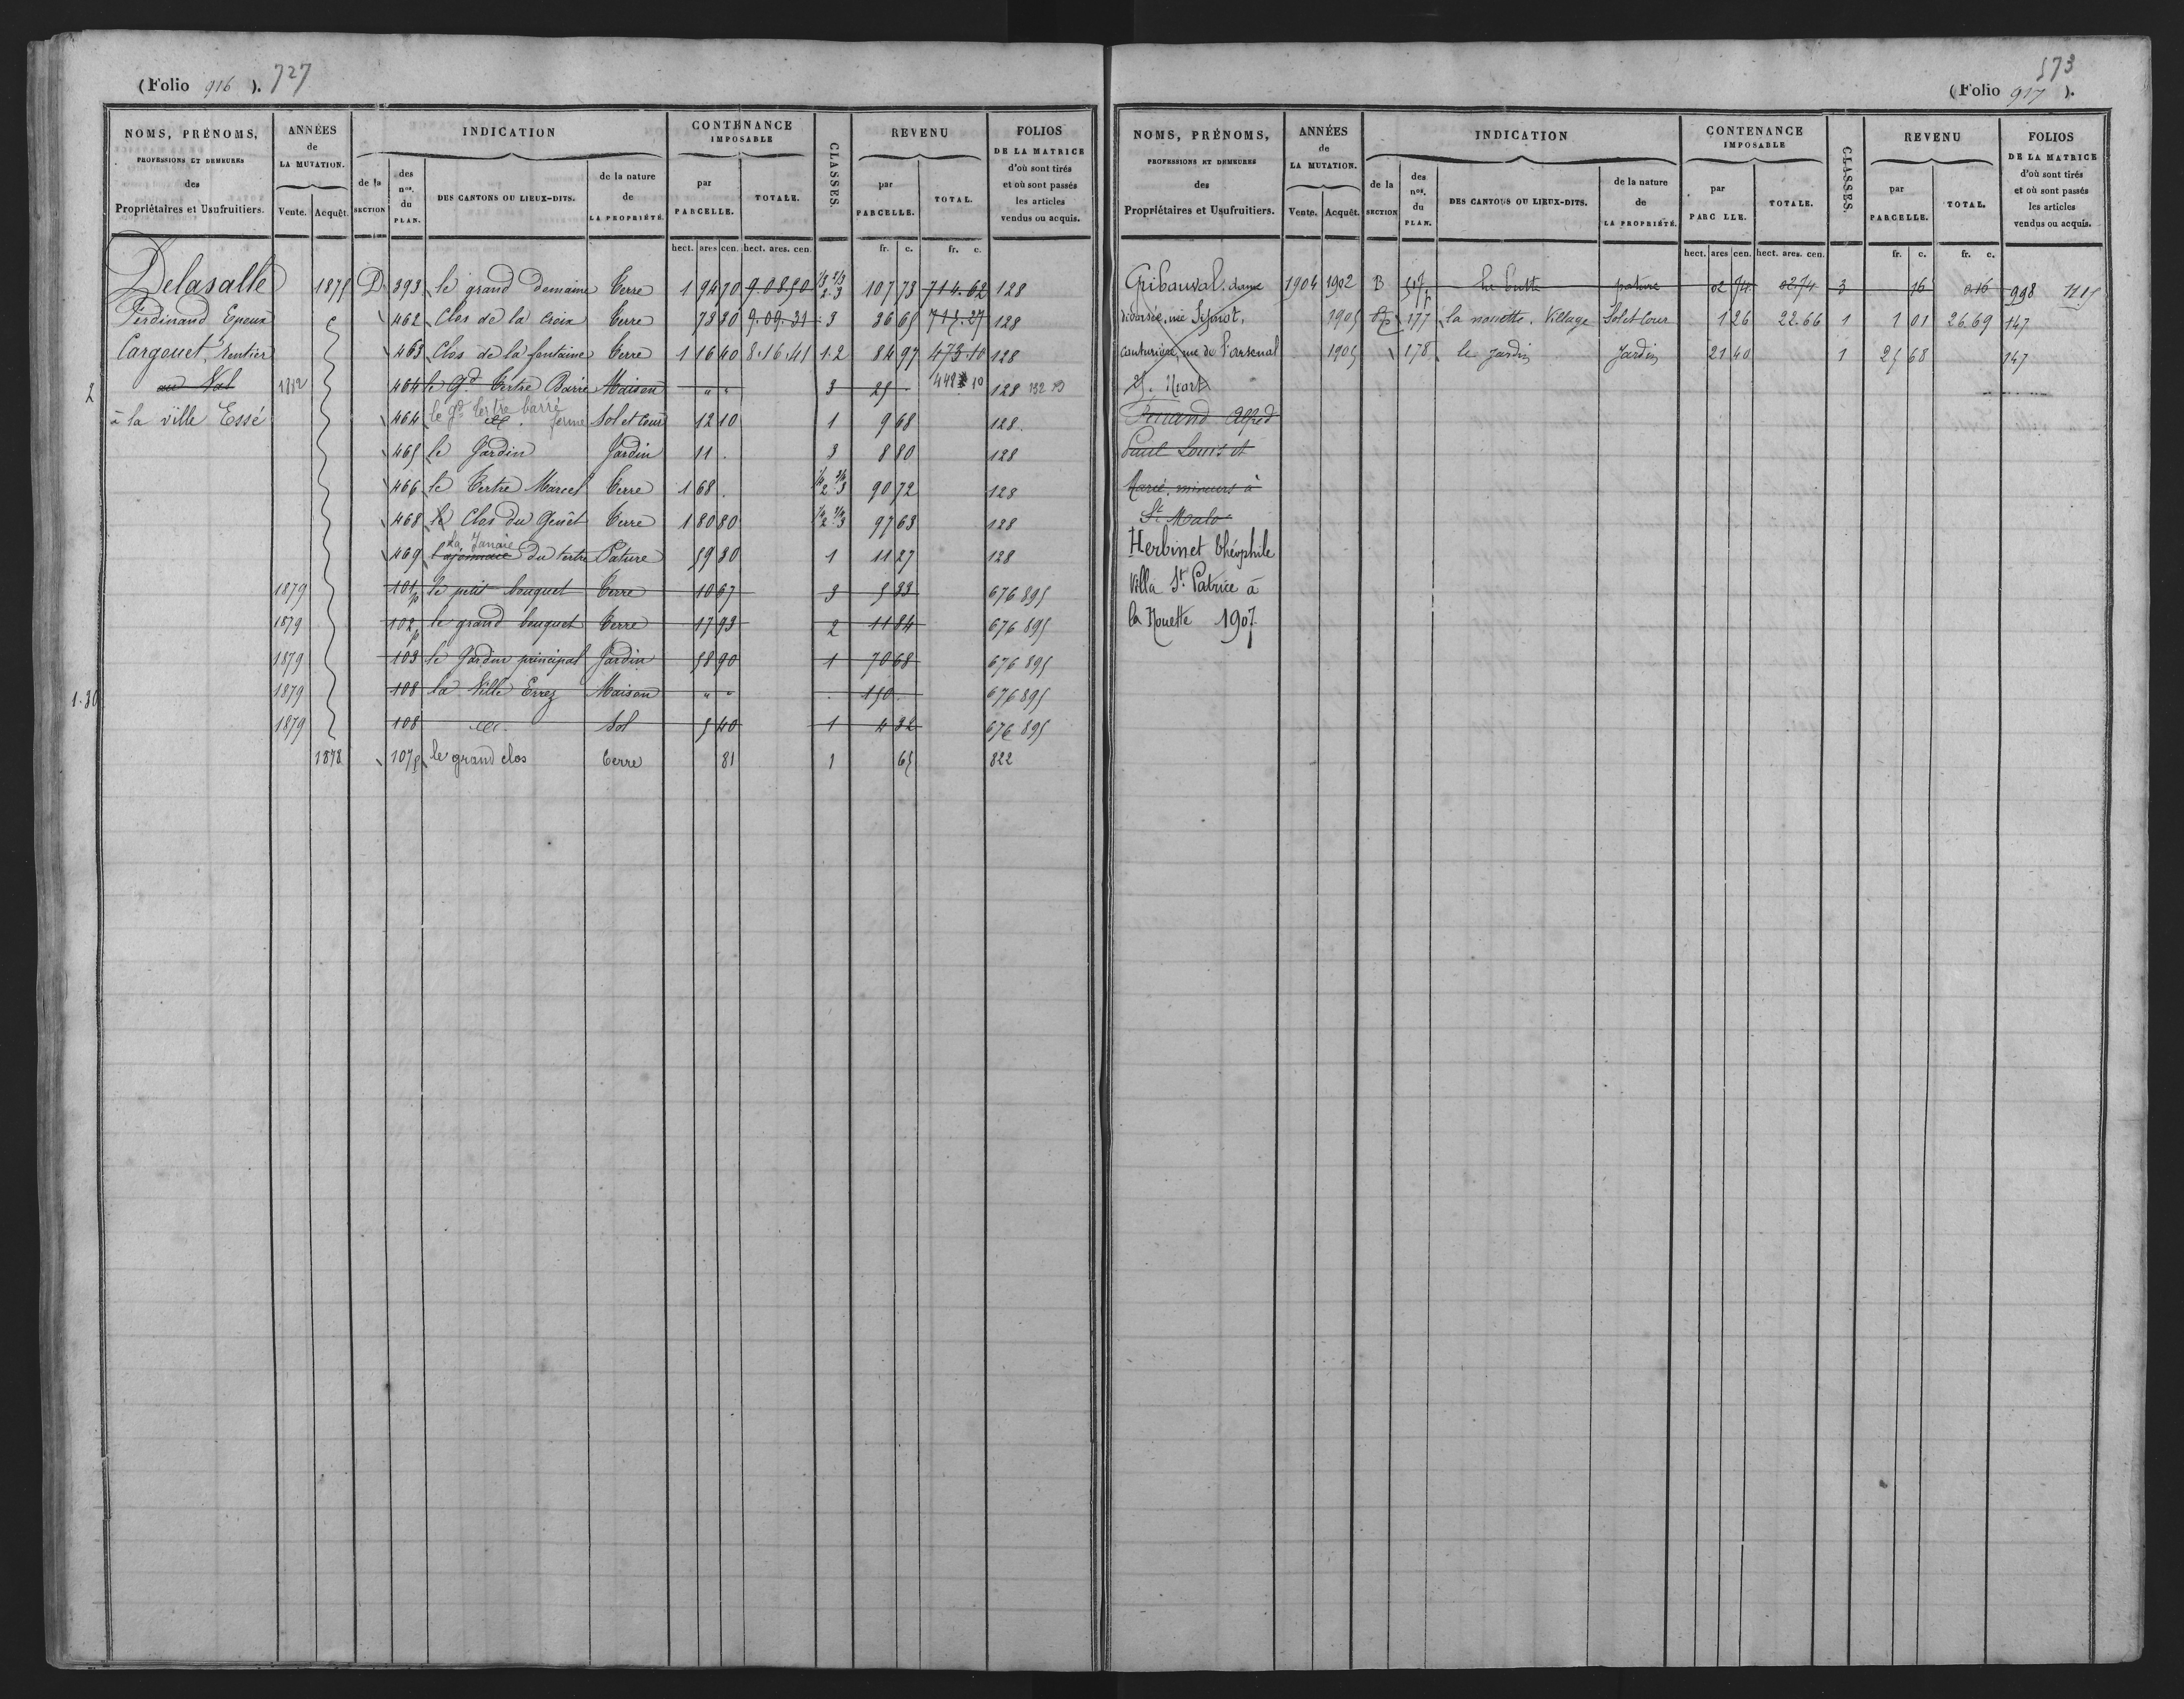 (Folio 916 ). 727
NOMS, PRÉNOMS, PROFESSIONS ET DEMEURES des Propriétaires et Usufruitiers.
ANNÉES de LA MUTATION. Vente. Acquêt.
INDICATION de la SECTION des nos. du PLAN. DES CANTONS OU LIEUX-DITS. de la nature de LA PROPRIÉTÉ.
CONTENANCE IMPOSABLE par PARCELLE. TOTALE.
CLASSES.
REVENU par PARCELLE. TOTAL.
FOLIOS DE LA MATRICE d'où sont tirés et où sont passés les articles vendus ou acquis.
hect. ares cen. hect. ares. cen. fr. c. fr. c.
Delasalle 1875 D 393 le grand domaine Terre 1 94 70 9.08.50 1/3 2/3 2.3 107 73 714.62 128
Ferdinand Epeux 462 Clos de la Croix Terre 73 30 9.09.31 3 36 65 715.27 128
Cargouet, Rentier 463 Clos de la fontaine Terre 1 16 40 8.16.41 1.2 84 97 473.10 128
2 au Val 1882 464 le Gd Tertre Barré Maison " " 3 25 448 10 128 132 B
à la ville Essé 464 le gd tertre barré ferme Sol et Cour 12 10 1 9 68 128
465 le Jardin Jardin 11 . 3 8 80 128
466 le Tertre Marcel Terre 1 68 . 2 3 90 72 128
468 le Clos du Genêt Terre 1 80 80 2 3 97 63 128
469 La Janaie du tertre Pature 59 80 1 11 27 128
1879 101p le petit bouquet Terre 10 67 3 5 33 676 895
1879 102p le grand bouquet Terre 17 93 2 11 84 676 895
1879 103 le Jardin principal Jardin 58 90 1 70 68 676 895
1.30 1879 108 la Ville Errez Maison " " . 150 . 676 895
1879 108 id. Sol 5 40 1 4 32 676 895
1878 107p le grand clos Terre 81 1 65 822
573
(Folio 917 ).
NOMS, PRÉNOMS, PROFESSIONS ET DEMEURES des Propriétaires et Usufruitiers.
ANNÉES de LA MUTATION. Vente. Acquêt.
INDICATION de la SECTION des nos. du PLAN. DES CANTONS OU LIEUX-DITS. de la nature de LA PROPRIÉTÉ.
CONTENANCE IMPOSABLE par PARC LLE. TOTALE.
CLASSES.
REVENU par PARCELLE. TOTAL.
FOLIOS DE LA MATRICE d'où sont tirés et où sont passés les articles vendus ou acquis.
hect. ares cen. hect. ares. cen. fr. c. fr. c.
Gribauval, dame 1904 1902 B la butte pature 02 74 02.74 3 16 0.16 998
divorcée, née 1905 177 la nouette. Village Sol et Cour 1 26 22.66 1 1 01 26.69 147
couturière, rue de l'arsenal 1905 178 le Jardin Jardin 21 40 1 25 68 147
Alfred
Paul Louis et
Marie, mineurs à
St. Malo
Herbinet Théophile
Villa St. Patrice à
la Nouette 1907.